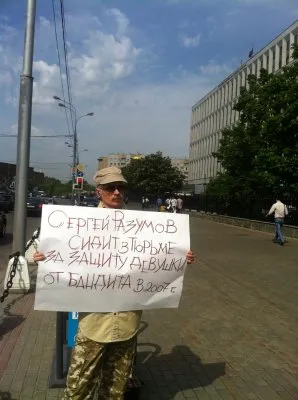 СЕРГЕЙ РАЗУМОВ
СИДИТ В ТЮРЬМЕ
ЗА ЗАЩИТУ ДЕВУШКИ
ОТ БАНДИТА В 2007 г.